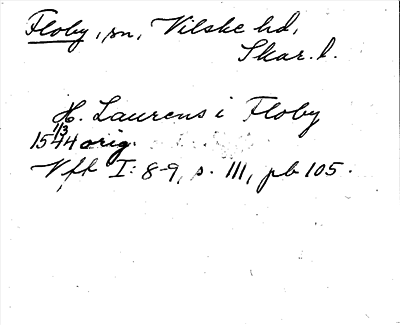 Floby, sn, Vilske hd,
Skar. l.
H. Laurens i Floby
1544 1/3 orig.
Vfk I: 8-9, s. 111, pb 105.